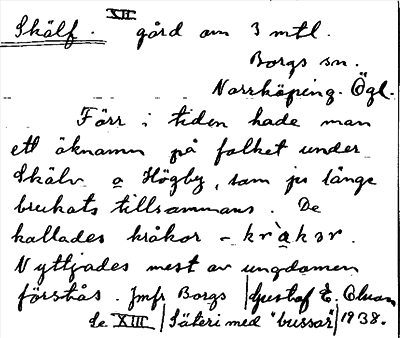 Skälf. XII gård om 3 mtl.
Borgs sn.
Norrköping. Ögl.
Förr i tiden hade man
ett öknamn på folket under
Skälv o Högby, som ju länge
brukats tillsammans. De
kallades kråkor – kråkər.
Nyttjades mest av ungdomen
förstås. Jmfr Borgs Gustaf E. Olson
se XIII Säteri med "bussar" 1938.